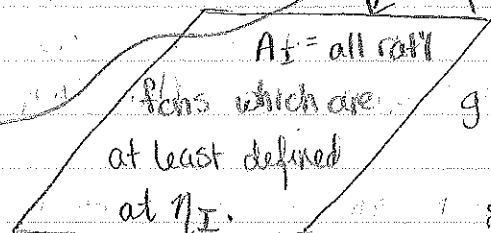 A_I = all rat'l
fcns which are
at least defined
at η_I.
g